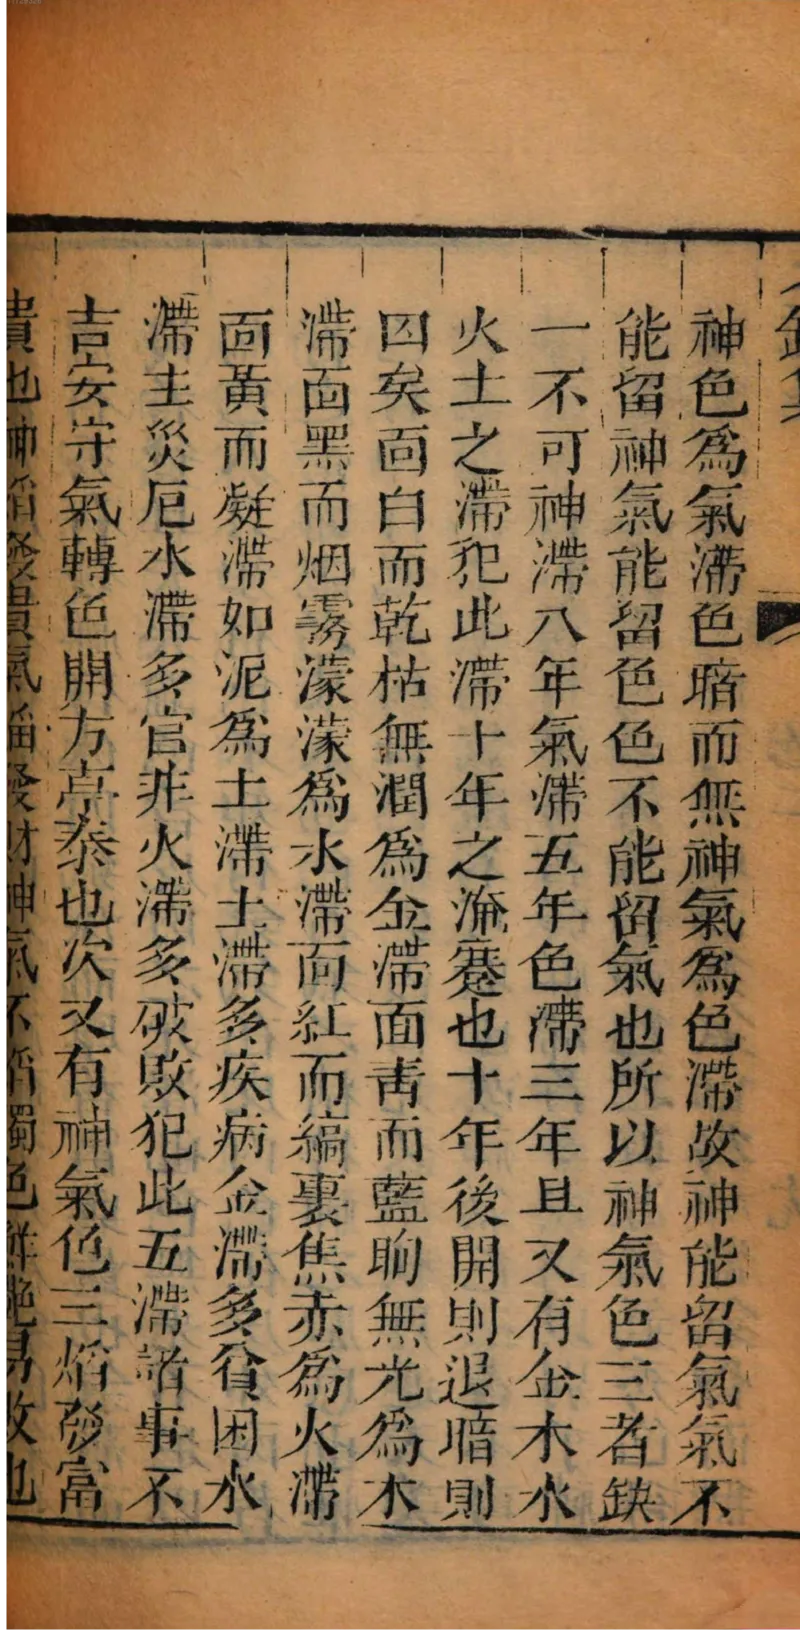 神色為氣滯色暗而無神氣為色滯故神能留氣氣不
能留神氣能留色色不能留氣也所以神氣色三者缺
一不可神滯八年氣滯五年色滯三年且又有金木水
火土之滯犯此滯十年之淹蹇也十年後開則退暗則
囚矣面白而乾枯無潤為金滯面青而藍眗無光為木
滯面黑而烟霧濛濛為水滯面紅而縞裏焦赤為火滯
面黃而凝滯如泥為土滯土滯多疾病金滯多貧困水
滯主災厄水滯多官非火滯多破敗犯此五滯諸事不
吉安守氣轉色開方亭泰也次又有神氣色三焰發富
貴也神焰發貴氣焰發財神氣不焰獨色鮮艷易敗也